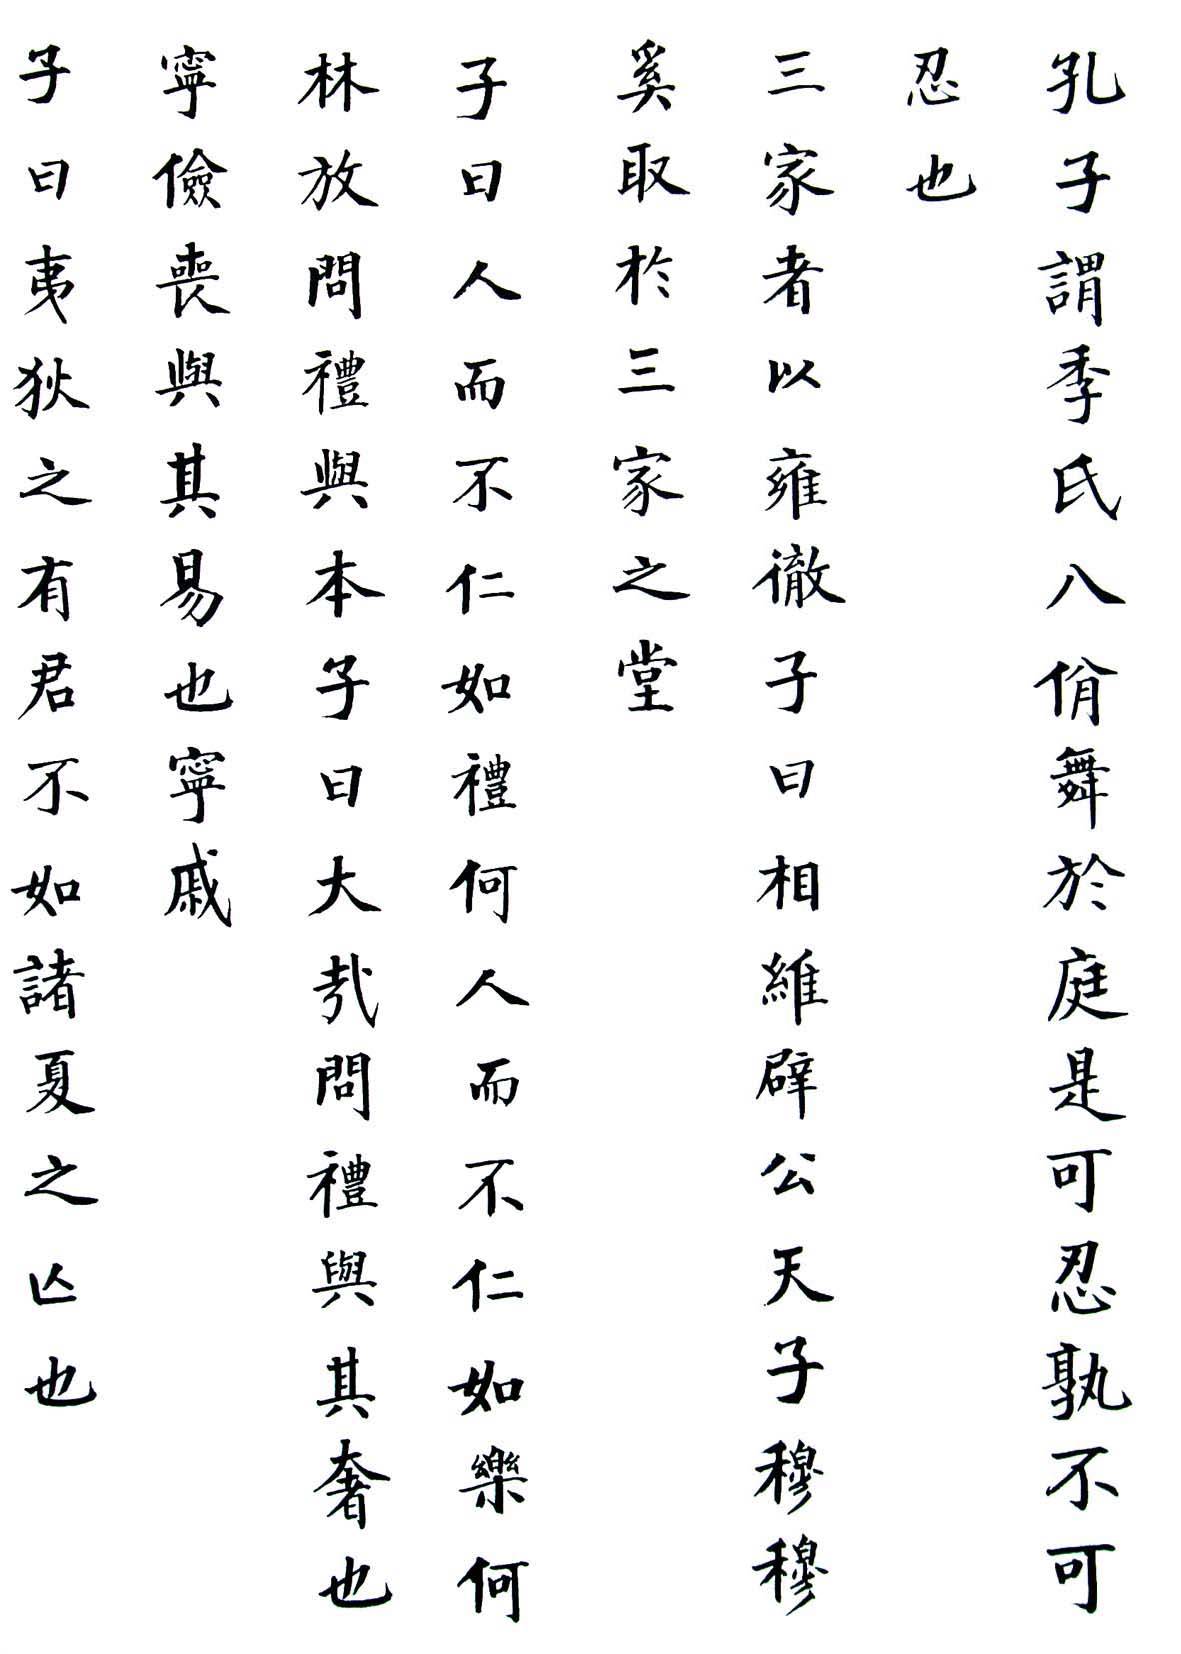 孔子謂季氏八佾舞於庭是可忍孰不可
忍也
三家者以雍徹子曰相維辟公天子穆穆
奚取於三家之堂
子曰人而不仁如禮何人而不仁如樂何
林放問禮與本子曰大哉問禮與其奢也
寧儉喪與其易也寧戚
子曰夷狄之有君不如諸夏之亾也